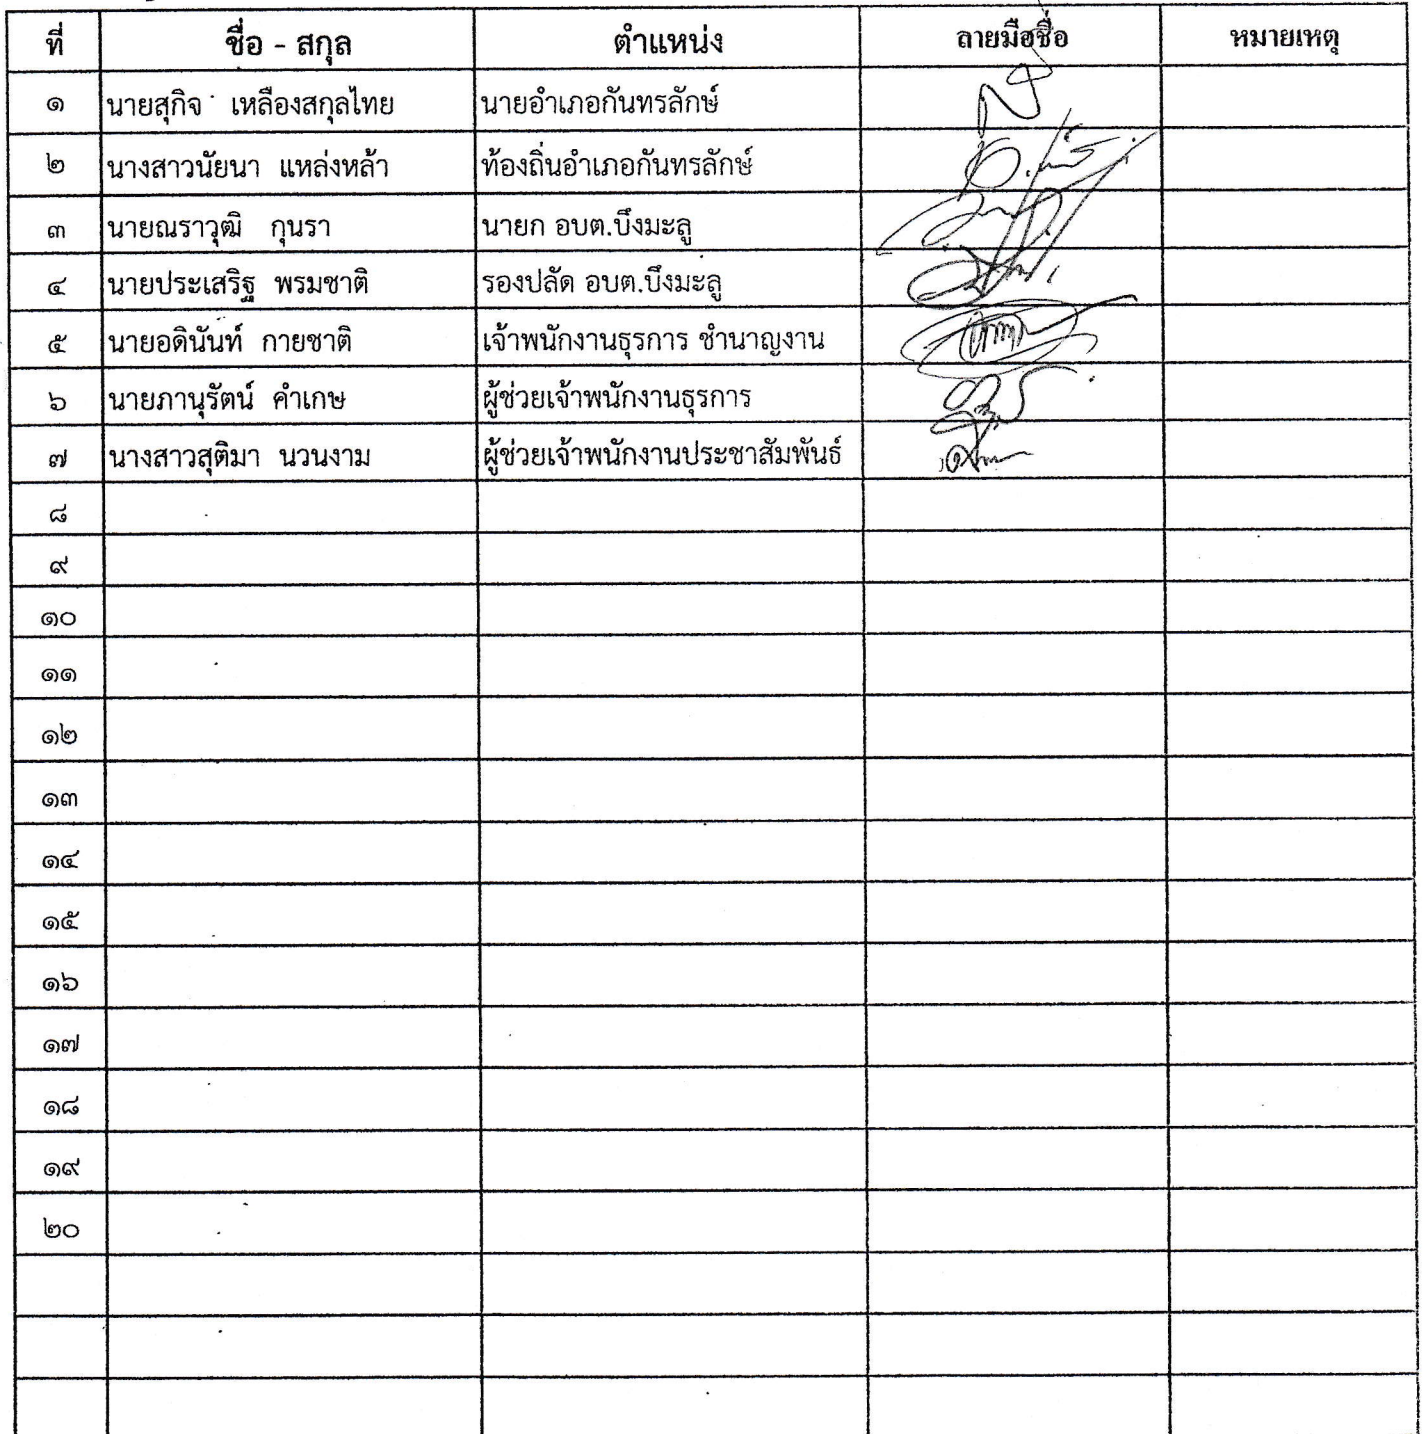 ที่ ชื่อ - สกุล ตำแหน่ง ลายมือชื่อ หมายเหตุ
๑ นายสุกิจ เหลืองสกุลไทย นายอำเภอกันทรลักษ์
๒ นางสาวนัยนา แหล่งหล้า ท้องถิ่นอำเภอกันทรลักษ์
๓ นายณราวุฒิ กุนรา นายก อบต.บึงมะลู
๔ นายประเสริฐ พรมชาติ รองปลัด อบต.บึงมะลู
๕ นายอดินันท์ กายชาติ เจ้าพนักงานธุรการ ชำนาญงาน
๖ นายภานุรัตน์ คำเกษ ผู้ช่วยเจ้าพนักงานธุรการ
๗ นางสาวสุติมา นวนงาม ผู้ช่วยเจ้าพนักงานประชาสัมพันธ์
๘
๙
๑๐
๑๑
๑๒
๑๓
๑๔
๑๕
๑๖
๑๗
๑๘
๑๙
๒๐